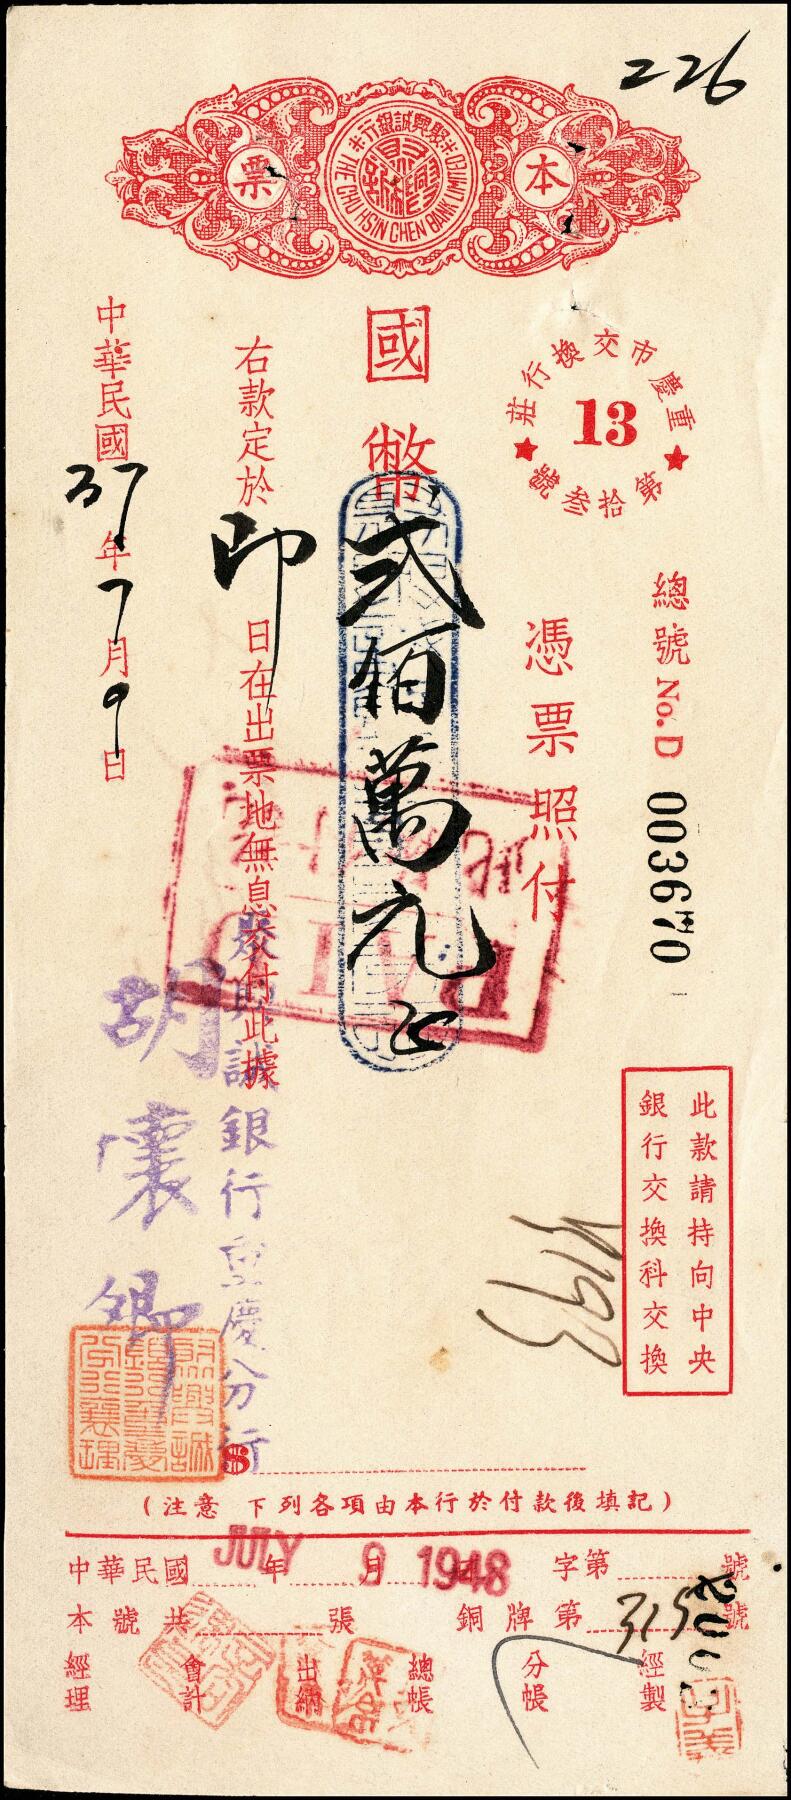 226
本票
聚興誠銀行
THE CHU HSIN CHEN BANK LIMITED
重慶市交換行莊
13
第拾叁號
總號 No. D 003670
憑票照付
國幣貳佰萬元正
右款定於即日在出票地無息交付此據
中華民國37年7月9日
PAID
聚興誠銀行重慶分行
胡霱卿
此款請持向中央
銀行交換科交換
$
(注意 下列各項由本行於付款後填記)
中華民國 年 月 日 字第 號
JULY 9 1948
本號共 張 銅牌第 315 號
經理 會計 出納 總帳 分帳 經製